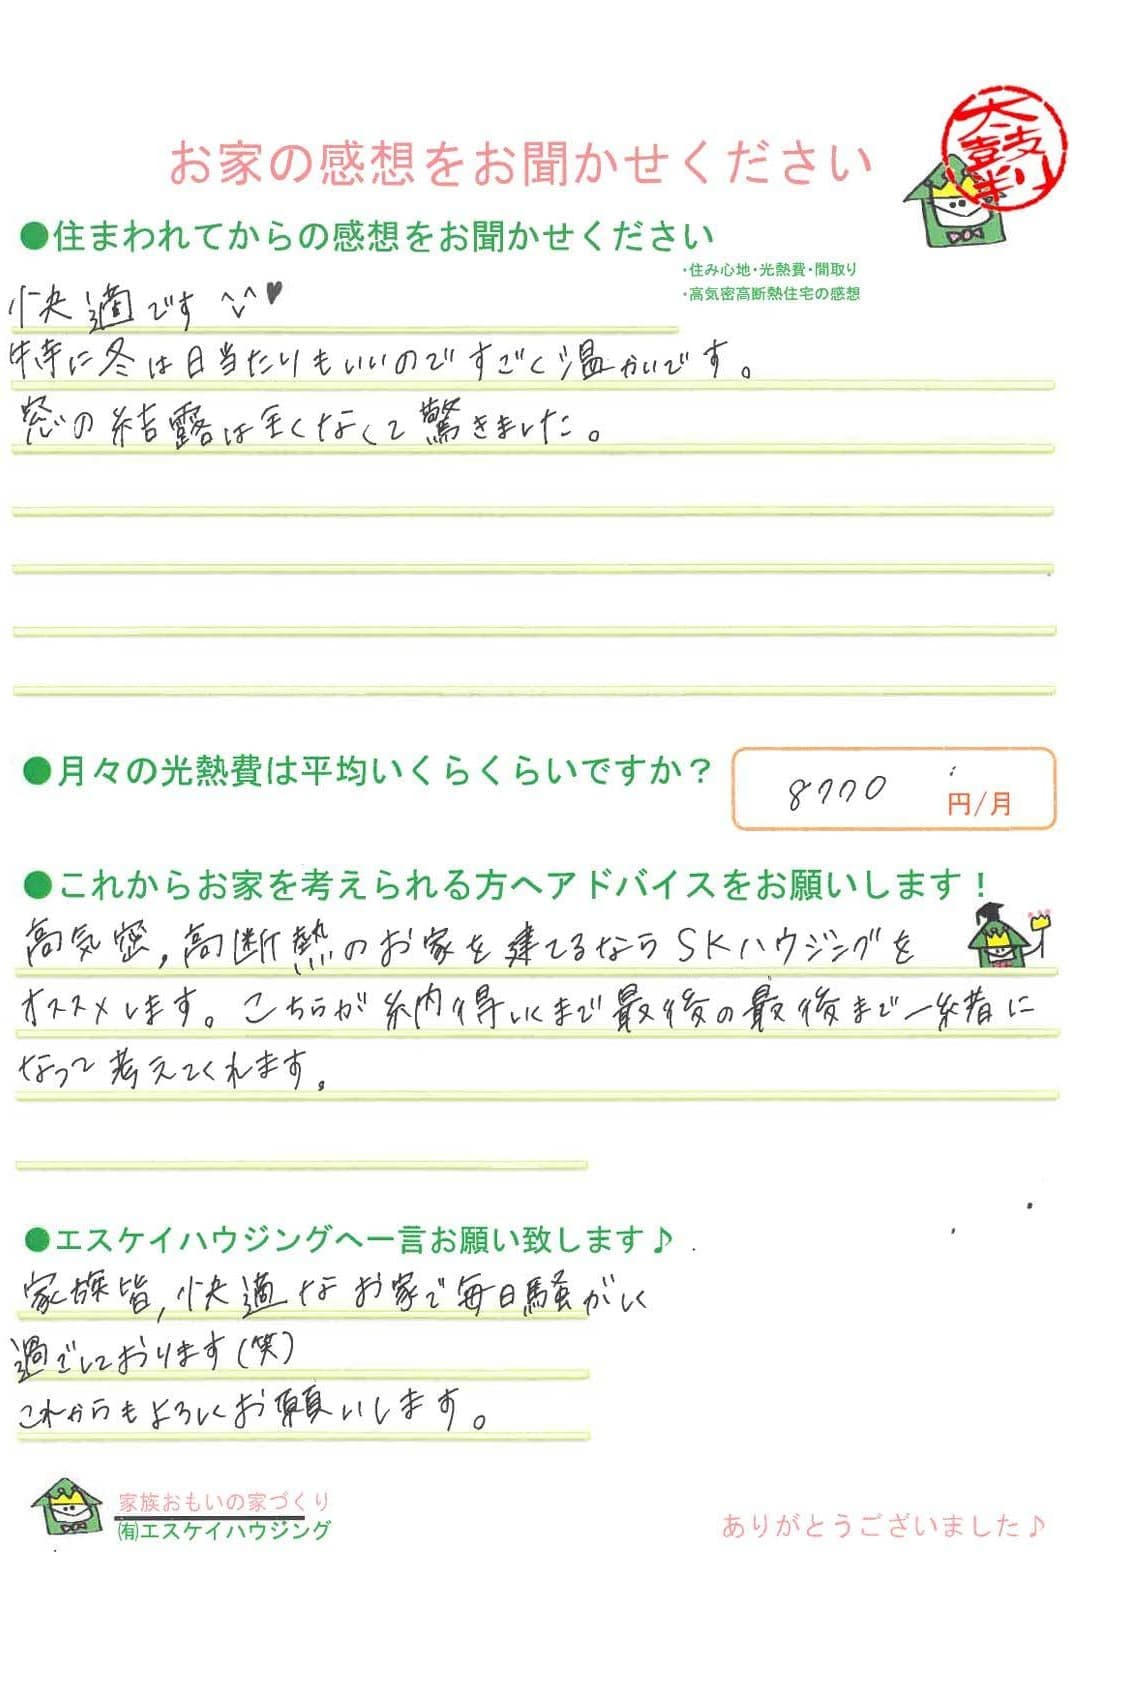 太鼓判
お家の感想をお聞かせください
●住まわれてからの感想をお聞かせください
・住み心地・光熱費・間取り
・高気密高断熱住宅の感想
快適です ^ー^♥
特に冬は日当たりもいいのですごく温かいです。
窓の結露は全くなくて驚きました。
●月々の光熱費は平均いくらくらいですか？
8770 円/月
●これからお家を考えられる方へアドバイスをお願いします！
高気密,高断熱のお家を建てるならSKハウジングを
オススメします。こちらが納得いくまで最後の最後まで一緒に
なって考えてくれます。
●エスケイハウジングへ一言お願い致します♪
家族皆,快適なお家で毎日騒がしく
過ごしております(笑)
これからもよろしくお願いします。
家族おもいの家づくり
㈲エスケイハウジング
ありがとうございました♪